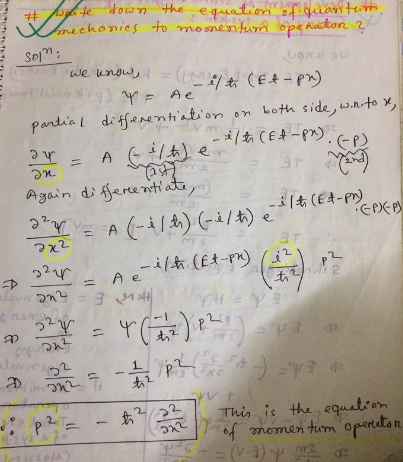 # Write down the equation of quantum
mechanics to momentum operator?
Solⁿ:
we know,
Ψ = Ae^{-i/ħ (Et-px)}
partial differentiation on both side, w.r. to x,
∂Ψ/∂x = A (-i/ħ) e^{-i/ħ (Et-px)} · (-P)
(1st) (2nd)
Again differentiate,
∂²Ψ/∂x² = A (-i/ħ) (-i/ħ) e^{-i/ħ (Et-px)} · (-P)(-P)
⇒ ∂²Ψ/∂x² = A e^{-i/ħ (Et-px)} (i²/ħ²) P²
⇒ ∂²Ψ/∂x² = Ψ (-1/ħ²) P²
⇒ ∂²/∂x² = - 1/ħ² P²
∴ P² = - ħ² (∂²/∂x²) This is the equation
of momentum operator